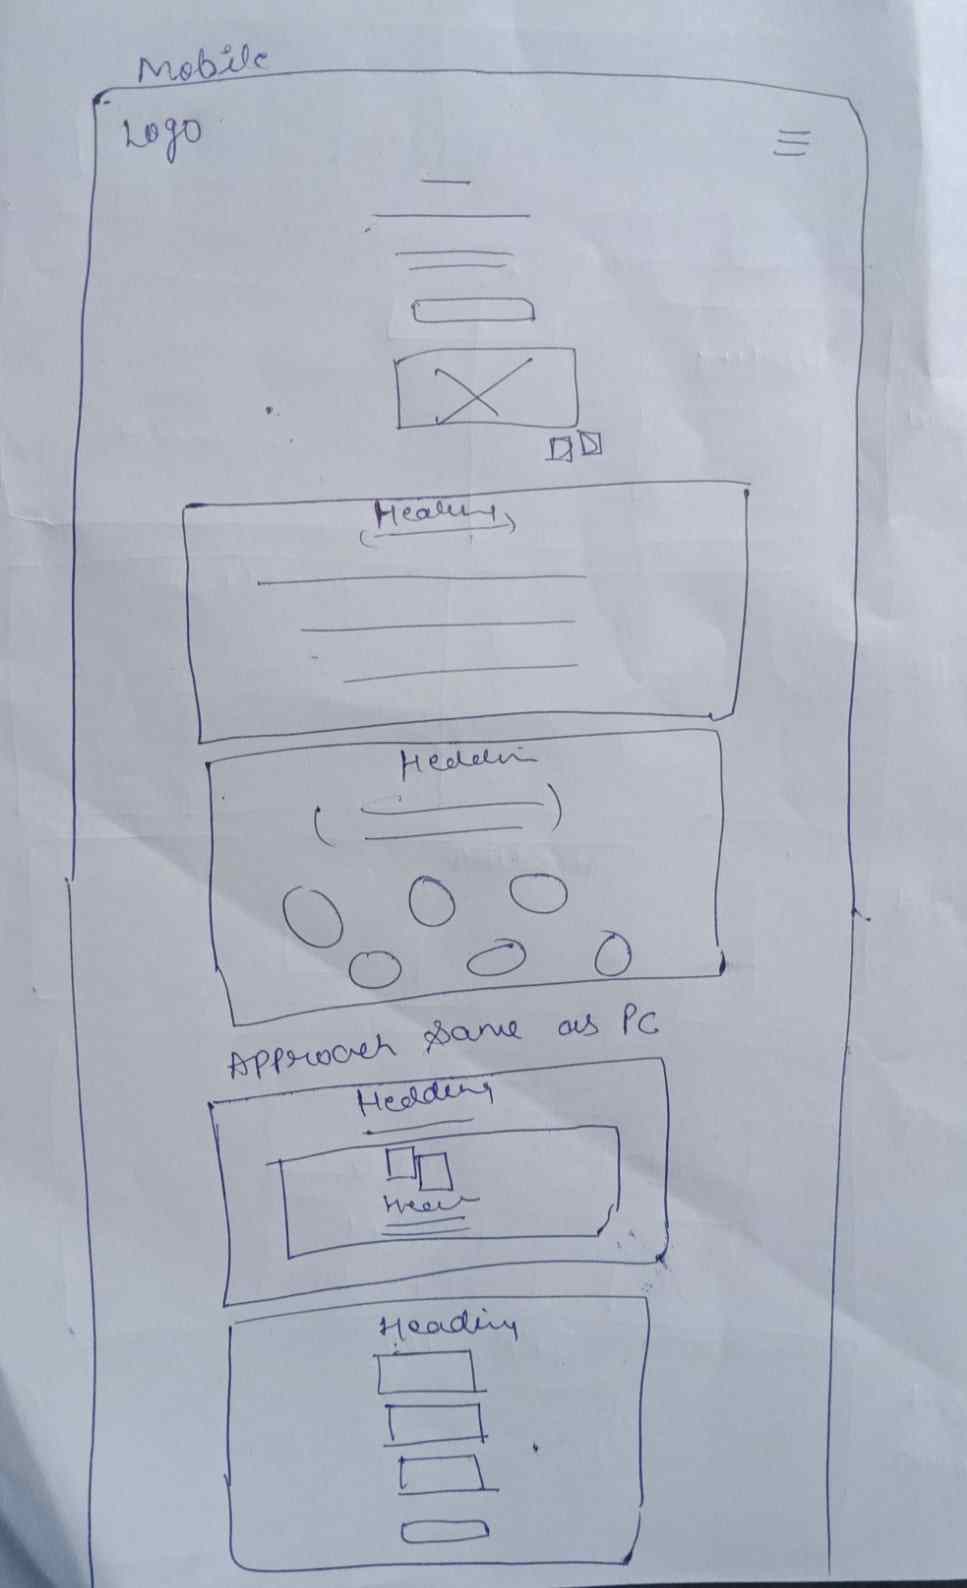 Mobile
Logo
Heading
Heddin
Approach same as PC
Hedding
Heading